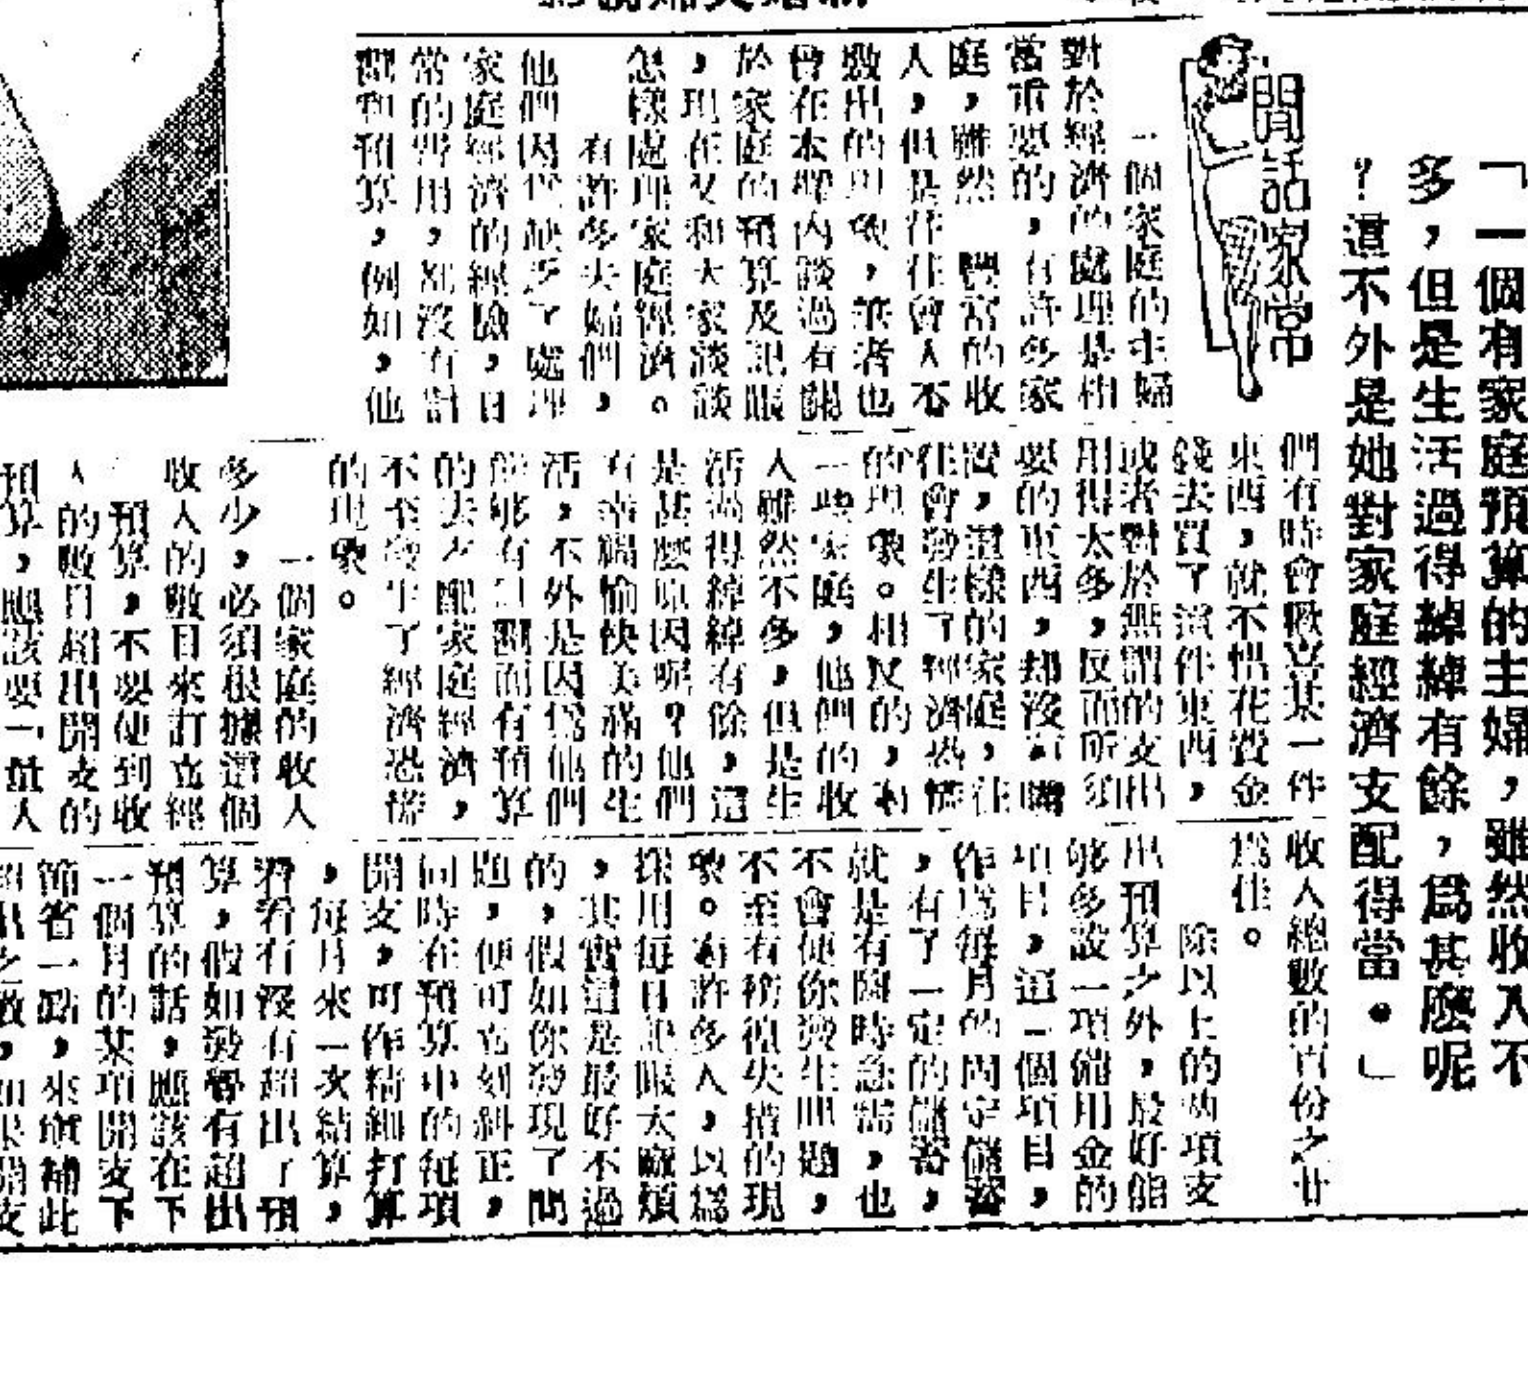 「一個有家庭預算的主婦，雖然收入不
多，但是生活過得綽綽有餘，爲甚麽呢
？這不外是她對家庭經濟支配得當。」
閒話家常
一個家庭的主婦
對於經濟的處理是相
當重要的，有許多家
庭，雖然 豐富的收
人，但是往往會人不
敷出的現象，筆者也
曾在本欄內談過有關
於家庭的預算及記賬
，現在又和大家談談
怎樣處理家庭經濟。
有許多夫婦們，
他們因爲缺乏了處理
家庭經濟的經驗，日
常的費用，都沒有計
劃和預算，例如，他
們有時會歡喜某一件
東西，就不惜花費金
錢去買了這件東西，
或者對於無謂的支出
用得太多，反而所須
要的東西，却沒有購
置，這樣的家庭，往
往會發生了經濟恐慌
的現象。相反的，有
一些家庭，他們的收
人雖然不多，但是生
活過得綽綽有餘，這
是甚麽原因呢？他們
有幸福愉快美滿的生
活，不外是因爲他們
能够有計劃而有預算
的去支配家庭經濟，
不至發生了經濟恐慌
的現象。
一個家庭的收人
多少，必須根據這個
收人的數目來訂立經
預算，不要使到收
人的數目超出開支的
預算，應該要量人
收人總數的百份之廿
爲佳。
除以上的兩項支
出預算之外，最好能
够多設一項備用金的
項目，這一個項目，
作爲每月的固定儲蓄
，有了一定的儲蓄，
就是有臨時急需，也
不會使你發生問題，
不至有徬徨失措的現
象。有許多人，以爲
採用每日記賬太麻煩
，其實這是最好不過
的，假如你發現了問
題，便可立刻糾正，
同時在預算中的每項
開支，可作精細打算
，每月來一次結算，
看看有沒有超出了預
算，假如發覺有超出
預算的話，應該在下
一個月的某項開支下
節省一點，來塡補此
超出之數，如果開支